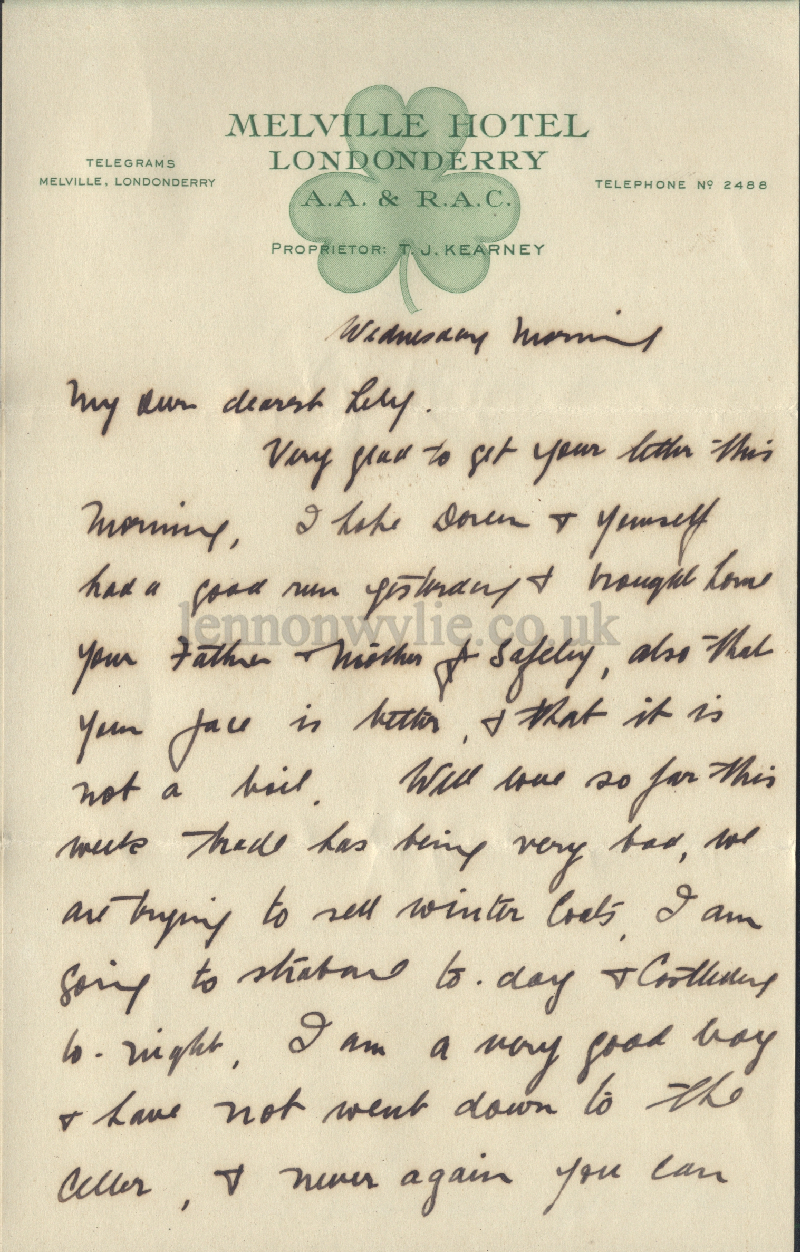 MELVILLE HOTEL
LONDONDERRY
A.A. & R.A.C.
PROPRIETOR: T. J. KEARNEY
TELEGRAMS
MELVILLE, LONDONDERRY
TELEPHONE Nº 2488
Wednesday Morning
My own dearest Lily.
Very glad to get your letter this
Morning, I hope Doreen & yourself
had a good run yesterday & brought home
your Father & Mother safely, also that
your face is better, & that it is
not a boil. Well love so far this
week trade has being very bad, we
are trying to sell winter Coats, I am
going to Strabane to-day &
to-night, I am a very good boy
& have not went down to the
Celler, & never again you can
lennonwylie.co.uk